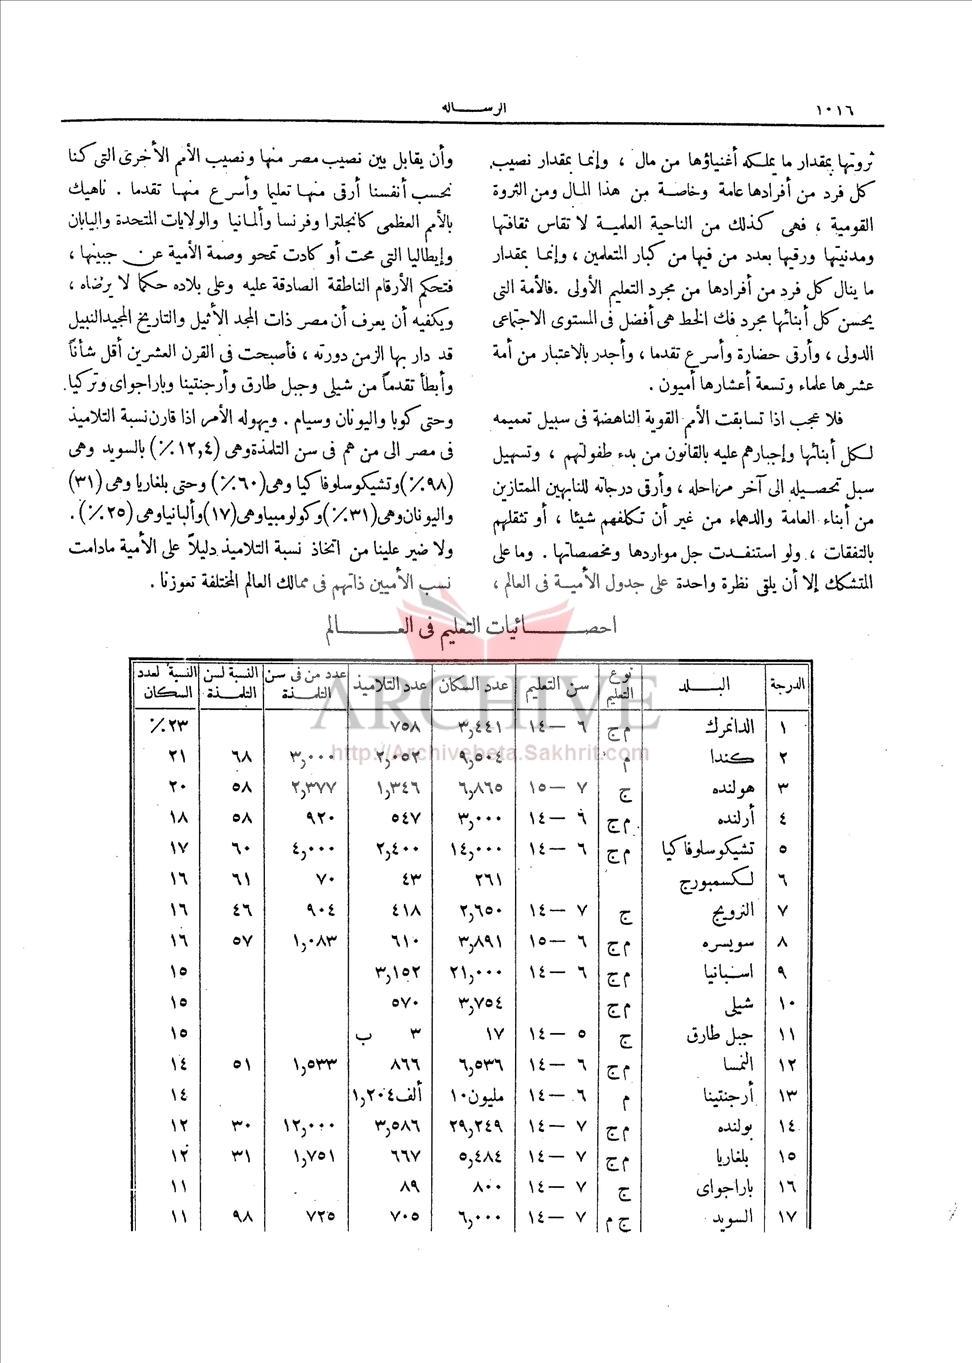 ١٠١٦
الرسالة
ثروتها بمقدار ما يملكه أغنياؤها من مال ، وإنما بمقدار نصيب
كل فرد من أفرادها عامة وخاصة من هذا المال ومن الثروة
القومية ، فهى كذلك من الناحية العلمية لا تقاس ثقافتها
ومدنيتها ورقيها بعدد من فيها من كبار المتعلمين ، وإنما بمقدار
ما ينال كل فرد من أفرادها من مجرد التعليم الأولى . فالأمة التى
يحسن كل أبنائها مجرد فك الخط هى أفضل فى المستوى الاجتماعى
الدولى ، وأرقى حضارة وأسرع تقدما ، وأجدر بالاعتبار من أمة
عشرها علماء وتسعة أعشارها أميون .
فلا عجب اذا تسابقت الأمم القوية الناهضة فى سبيل تعميمه
لكل أبنائها وإجبارهم عليه بالقانون من بدء طفولتهم ، وتسهيل
سبل تحصيله الى آخر مراحله ، وأرقى درجاته للنابهين الممتازين
من أبناء العامة والدهماء من غير أن تكلفهم شيئا ، أو تثقلهم
بالنفقات ، ولو استنفدت جل مواردها ومخصصاتها . وما على
المتشكك إلا أن يلقى نظرة واحدة على جدول الأمية فى العالم ،
وأن يقابل بين نصيب مصر منها ونصيب الأمم الأخرى التى كنا
نحسب أنفسنا أرقى منها تعليما وأسرع منها تقدما . ناهيك
بالأمم العظمى كانجلترا وفرنسا وألمانيا والولايات المتحدة واليابان
وإيطاليا التى محت أو كادت تمحو وصمة الأمية عن جبينها ،
فتحكم الأرقام الناطقة الصادقة عليه وعلى بلاده حكما لا يرضاه ،
ويكفيه أن يعرف أن مصر ذات المجد الأثيل والتاريخ المجيد النبيل
قد دار بها الزمن دورته ، فأصبحت فى القرن العشرين أقل شأناً
وأبطأ تقدماً من شيلى وجبل طارق وأرجنتينا وباراجواى وتركيا.
وحتى كوبا واليونان وسيام . ويهوله الأمر اذا قارن نسبة التلاميذ
فى مصر الى من هم فى سن التلمذة وهى (١٢,٤٪) بالسويد وهى
(٩٨٪) وتشيكوسلوفاكيا وهى (٦٠٪) وحتى بلغاريا وهى (٣١)
واليونان وهى (٣١٪) وكولومبيا وهى (١٧) وألبانيا وهى (٢٥٪) .
ولا ضير علينا من اتخاذ نسبة التلاميذ دليلاً على الأمية مادامت
نسب الأميين ذاتهم فى ممالك العالم المختلفة تعوزنا .
احصائيات التعليم فى العالم
الدرجة البلد نوع التعليم سن التعليم عدد السكان عدد التلاميذ عدد من فى سن التلمذة النسبة لسن التلمذة النسبة لعدد السكان
١ الدانمرك م ج ٦ – ١٤ ٣,٤٤١ ٧٥٨ ٢٣٪
٢ كندا م ٩,٥٠٤ ٢,٠٥٢ ٣,٠٠٠ ٦٨ ٢١
٣ هولنده ج ٧ – ١٥ ٦,٨٦٥ ١,٣٤٦ ٢,٣٧٧ ٥٨ ٢٠
٤ أرلنده م ج ٦ – ١٤ ٣,٠٠٠ ٥٤٧ ٩٢٠ ٥٨ ١٨
٥ تشيكوسلوفاكيا م ج ٦ – ١٤ ١٤,٠٠٠ ٢,٤٠٠ ٤,٠٠٠ ٦٠ ١٧
٦ لكسمبورج ٢٦١ ٤٣ ٧٠ ٦١ ١٦
٧ النرويج ج ٧ – ١٤ ٢,٦٥٠ ٤١٨ ٩٠٤ ٤٦ ١٦
٨ سويسره م ج ٦ – ١٥ ٣,٨٩١ ٦١٠ ١,٠٨٣ ٥٧ ١٦
٩ اسبانيا م ج ٦ – ١٤ ٢١,٠٠٠ ٣,١٥٢ ١٥
١٠ شيلى م ج ٣,٧٥٤ ٥٧٠ ١٥
١١ جبل طارق ج ٥ – ١٤ ١٧ ٣ ب ١٥
١٢ النمسا م ج ٦ – ١٤ ٦,٥٣٦ ٨٦٦ ١,٥٣٣ ٥١ ١٤
١٣ أرجنتينا م ٦ – ١٤ مليون ١٠ ألف ١,٢٠٤ ١٤
١٤ بولنده م ج ٧ – ١٤ ٢٩,٢٤٩ ٣,٥٨٦ ١٢,٠٠٠ ٣٠ ١٢
١٥ بلغاريا م ج ٧ – ١٤ ٥,٤٨٤ ٦٦٧ ١,٧٥١ ٣١ ١٢
١٦ باراجواى ج ٧ – ١٤ ٨٠٠ ٨٩ ١١
١٧ السويد ج م ٧ – ١٤ ٦,٠٠٠ ٧٠٥ ٧٢٥ ٩٨ ١١
ARCHIVE
http://Archivebeta.Sakhrit.com